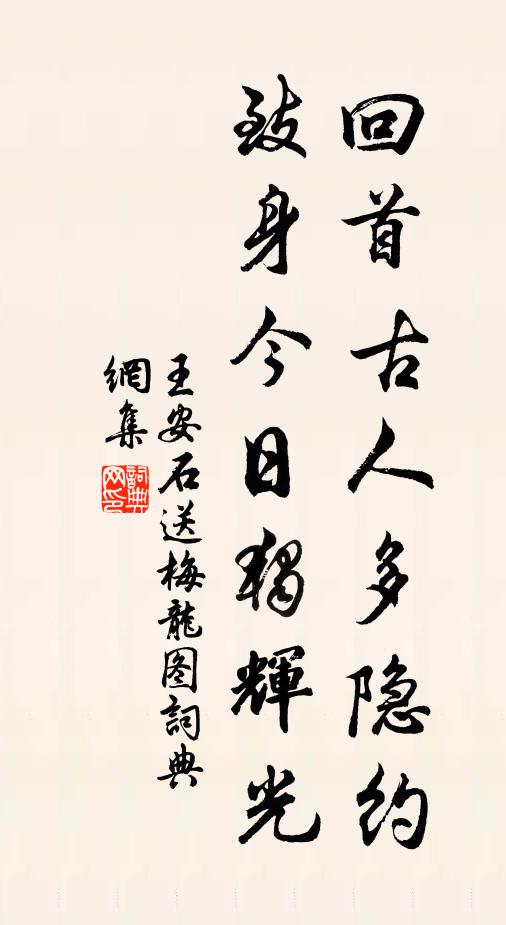 回首古人多隐约
致身今日独輝光
王安石送梅龍图詞典
網集
詞典
网印